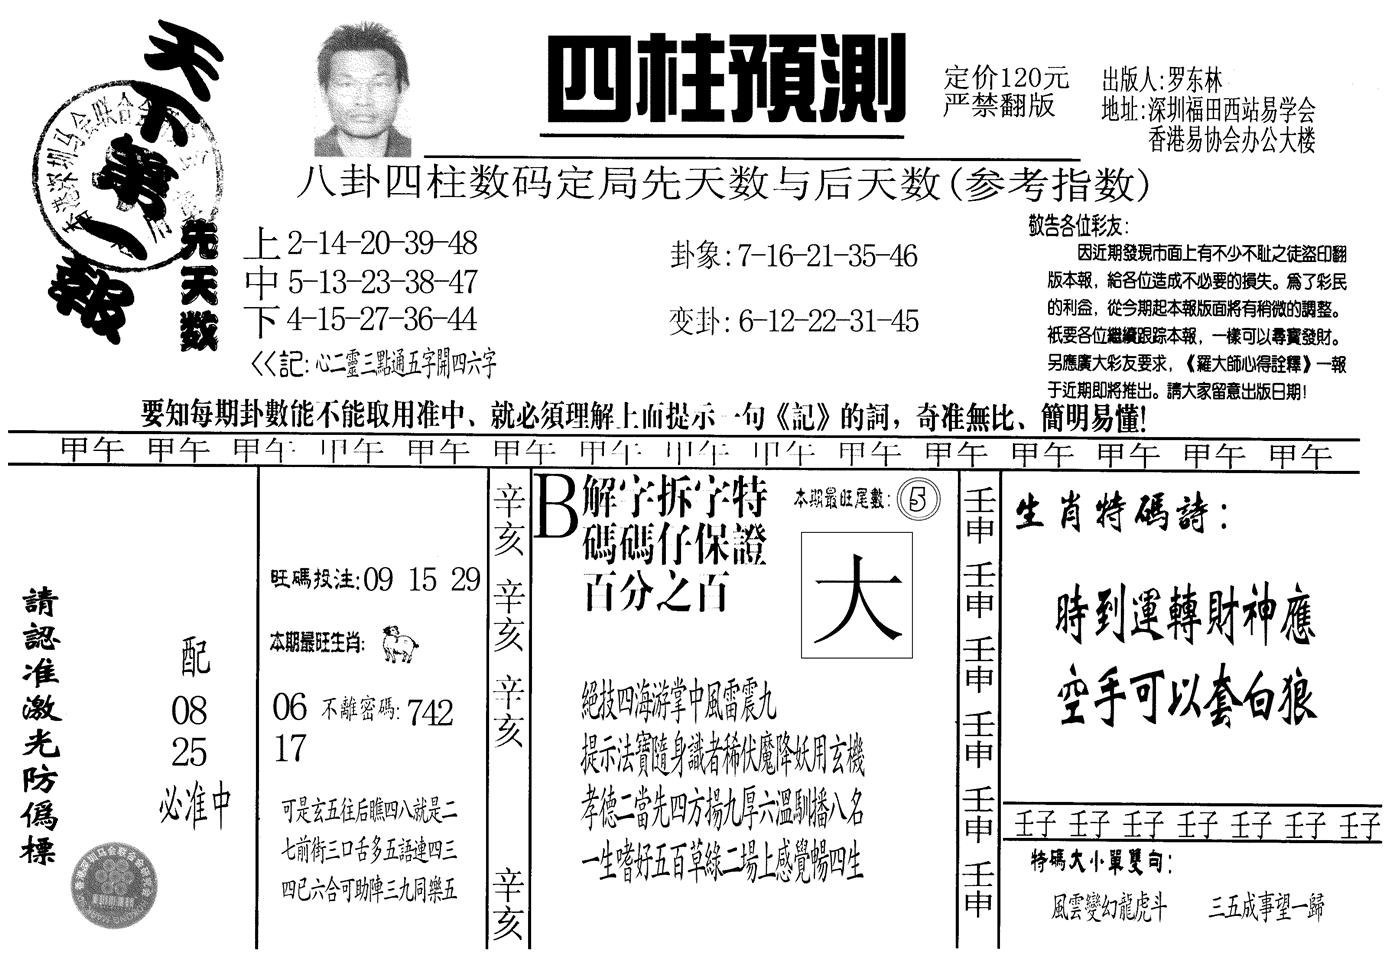 天下第一報
四柱預測
定价120元
严禁翻版
出版人:罗东林
地址:深圳福田西站易学会
香港易协会办公大楼
八卦四柱数码定局先天数与后天数(参考指数)
先天数
上 2-14-20-39-48
中 5-13-23-38-47
下 4-15-27-36-44
<<記: 心二靈三點通五字開四六字
卦象: 7-16-21-35-46
变卦: 6-12-22-31-45
敬告各位彩友:
因近期發現市面上有不少不耻之徒盜印翻
版本報，給各位造成不必要的損失。爲了彩民
的利益，從今期起本報版面將有稍微的調整。
衹要各位繼續跟踪本報，一樣可以尋寶發財。
另應廣大彩友要求，《羅大師心得詮釋》一報
于近期即將推出。請大家留意出版日期!
要知每期卦數能不能取用准中、就必須理解上面提示一句《記》的詞，奇准無比、簡明易懂!
甲午 甲午 甲午 甲午 甲午 甲午 甲午 甲午 甲午 甲午 甲午 甲午 甲午 甲午 甲午
請認准激光防僞標
配
08
25
必准中
旺碼投注:09 15 29
本期最旺生肖:
06 不離密碼: 742
17
可是玄五往后瞧四八就是二
七前街三口舌多五語連四三
四已六合可助陣三九同樂五
辛亥 辛亥 辛亥 辛亥
B
解字拆字特
碼碼仔保證
百分之百
本期最旺尾數: 5
大
絕技四海游掌中風雷震九
提示法寶隨身識者稀伏魔降妖用玄機
孝德二當先四方揚九厚六溫馴播八名
一生嗜好五百草綠二場上感覺暢四生
壬申 壬申 壬申 壬申 壬申 壬申
生肖特碼詩:
時到運轉財神應
空手可以套白狼
壬子 壬子 壬子 壬子 壬子 壬子 壬子
特碼大小單雙句:
風雲變幻龍虎斗 三五成事望一歸